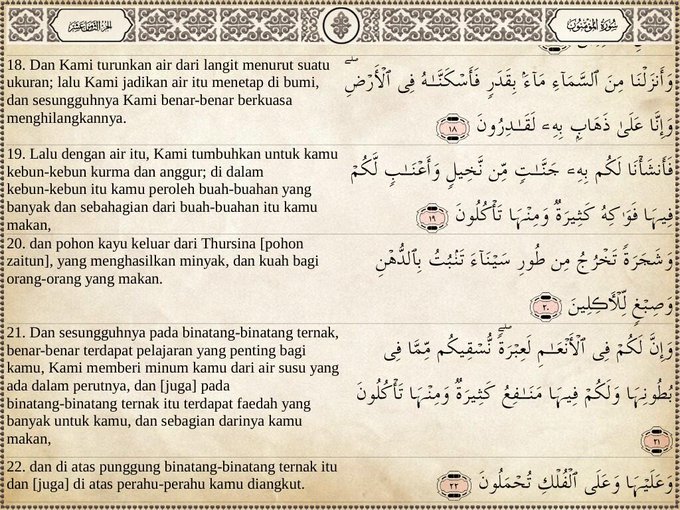 الجزء الثامن عشر
سورة المؤمنون
18. Dan Kami turunkan air dari langit menurut suatu
ukuran; lalu Kami jadikan air itu menetap di bumi,
dan sesungguhnya Kami benar-benar berkuasa
menghilangkannya.
وَأَنزَلْنَا مِنَ ٱلسَّمَآءِ مَآءًۢ بِقَدَرٍ فَأَسْكَنَّـٰهُ فِى ٱلْأَرْضِ ۖ
وَإِنَّا عَلَىٰ ذَهَابٍۭ بِهِۦ لَقَـٰدِرُونَ ١٨
19. Lalu dengan air itu, Kami tumbuhkan untuk kamu
kebun-kebun kurma dan anggur; di dalam
kebun-kebun itu kamu peroleh buah-buahan yang
banyak dan sebahagian dari buah-buahan itu kamu
makan,
فَأَنشَأْنَا لَكُم بِهِۦ جَنَّـٰتٍ مِّن نَّخِيلٍ وَأَعْنَـٰبٍ لَّكُمْ
فِيهَا فَوَٰكِهُ كَثِيرَةٌ وَمِنْهَا تَأْكُلُونَ ١٩
20. dan pohon kayu keluar dari Thursina [pohon
zaitun], yang menghasilkan minyak, dan kuah bagi
orang-orang yang makan.
وَشَجَرَةً تَخْرُجُ مِن طُورِ سَيْنَآءَ تَنۢبُتُ بِٱلدُّهْنِ
وَصِبْغٍ لِّلْـَٔاكِلِينَ ٢٠
21. Dan sesungguhnya pada binatang-binatang ternak,
benar-benar terdapat pelajaran yang penting bagi
kamu, Kami memberi minum kamu dari air susu yang
ada dalam perutnya, dan [juga] pada
binatang-binatang ternak itu terdapat faedah yang
banyak untuk kamu, dan sebagian darinya kamu
makan,
وَإِنَّ لَكُمْ فِى ٱلْأَنْعَـٰمِ لَعِبْرَةً ۖ نُّسْقِيكُم مِّمَّا فِى
بُطُونِهَا وَلَكُمْ فِيهَا مَنَـٰفِعُ كَثِيرَةٌ وَمِنْهَا تَأْكُلُونَ
٢١
22. dan di atas punggung binatang-binatang ternak itu
dan [juga] di atas perahu-perahu kamu diangkut.
وَعَلَيْهَا وَعَلَى ٱلْفُلْكِ تُحْمَلُونَ ٢٢